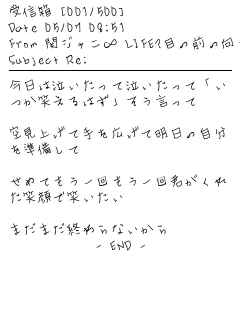 受信箱 [001/500]
Date 05/07 08:51
From 関ジャニ∞ LIFE?目の前の向
Subject Re:
今日は泣いたって泣いたって「い
つか笑えるはず」そう言って
空見上げて手を広げて明日の自分
を準備して
せめてもう一回もう一回君がくれ
た笑顔で笑いたい
まだまだ終わらないから
- END -